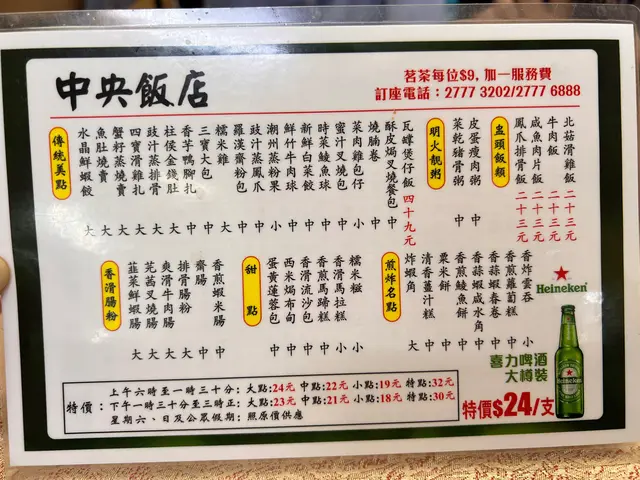 中央飯店
茗茶每位$9, 加一服務費
訂座電話：2777 3202/2777 6888
傳統美點
水晶鮮蝦餃 大
魚肚燒賣 大
蟹籽蒸燒賣 大
四寶滑雞扎 大
豉汁蒸排骨 大
柱侯金錢肚 大
香芋鴨腳扎 中
三寶大包 中
糯米雞 大
羅漢齋粉包 中
豉汁蒸鳳爪 中
潮州蒸粉果 小
鮮竹牛肉球 中
鮮蝦白菜餃 中
時菜鯪魚球 中
蜜汁叉燒包 中
菜肉雞包仔 小
燒腩卷 大
酥皮焗叉燒餐包 中
瓦罉煲仔飯 四十九元
明火靚粥
菜乾豬骨粥 中
皮蛋瘦肉粥 中
盅頭飯類
鳳爪排骨飯 二十三元
咸魚肉片飯 二十三元
牛肉飯 二十三元
北菇滑雞飯 二十三元
香滑腸粉
韮菜鮮蝦腸 大
芫茜叉燒腸 大
爽滑牛肉腸 大
排骨腸粉 大
齋腸 中
香煎蝦米腸 中
甜點
蛋黃蓮蓉包 中
西米焗布甸 中
香滑流沙包 中
香煎馬蹄糕 中
香滑馬拉糕 小
糯米糍 小
煎炸名點
炸蝦角 大
清香薑汁糕 中
粟米餅 中
香煎鯪魚餅 中
香蒜蝦咸水角 中
香蒜蝦春卷 中
香煎蘿蔔糕 小
香炸雲吞 中
Heineken
喜力啤酒
大樽裝
特價$24/支
特價：
上午六時至一時三十分：大點:24元 中點:22元 小點:19元 特點:32元
下午一時三十分至三時正：大點:23元 中點:21元 小點:18元 特點:30元
星期六、日及公眾假期：照原價供應